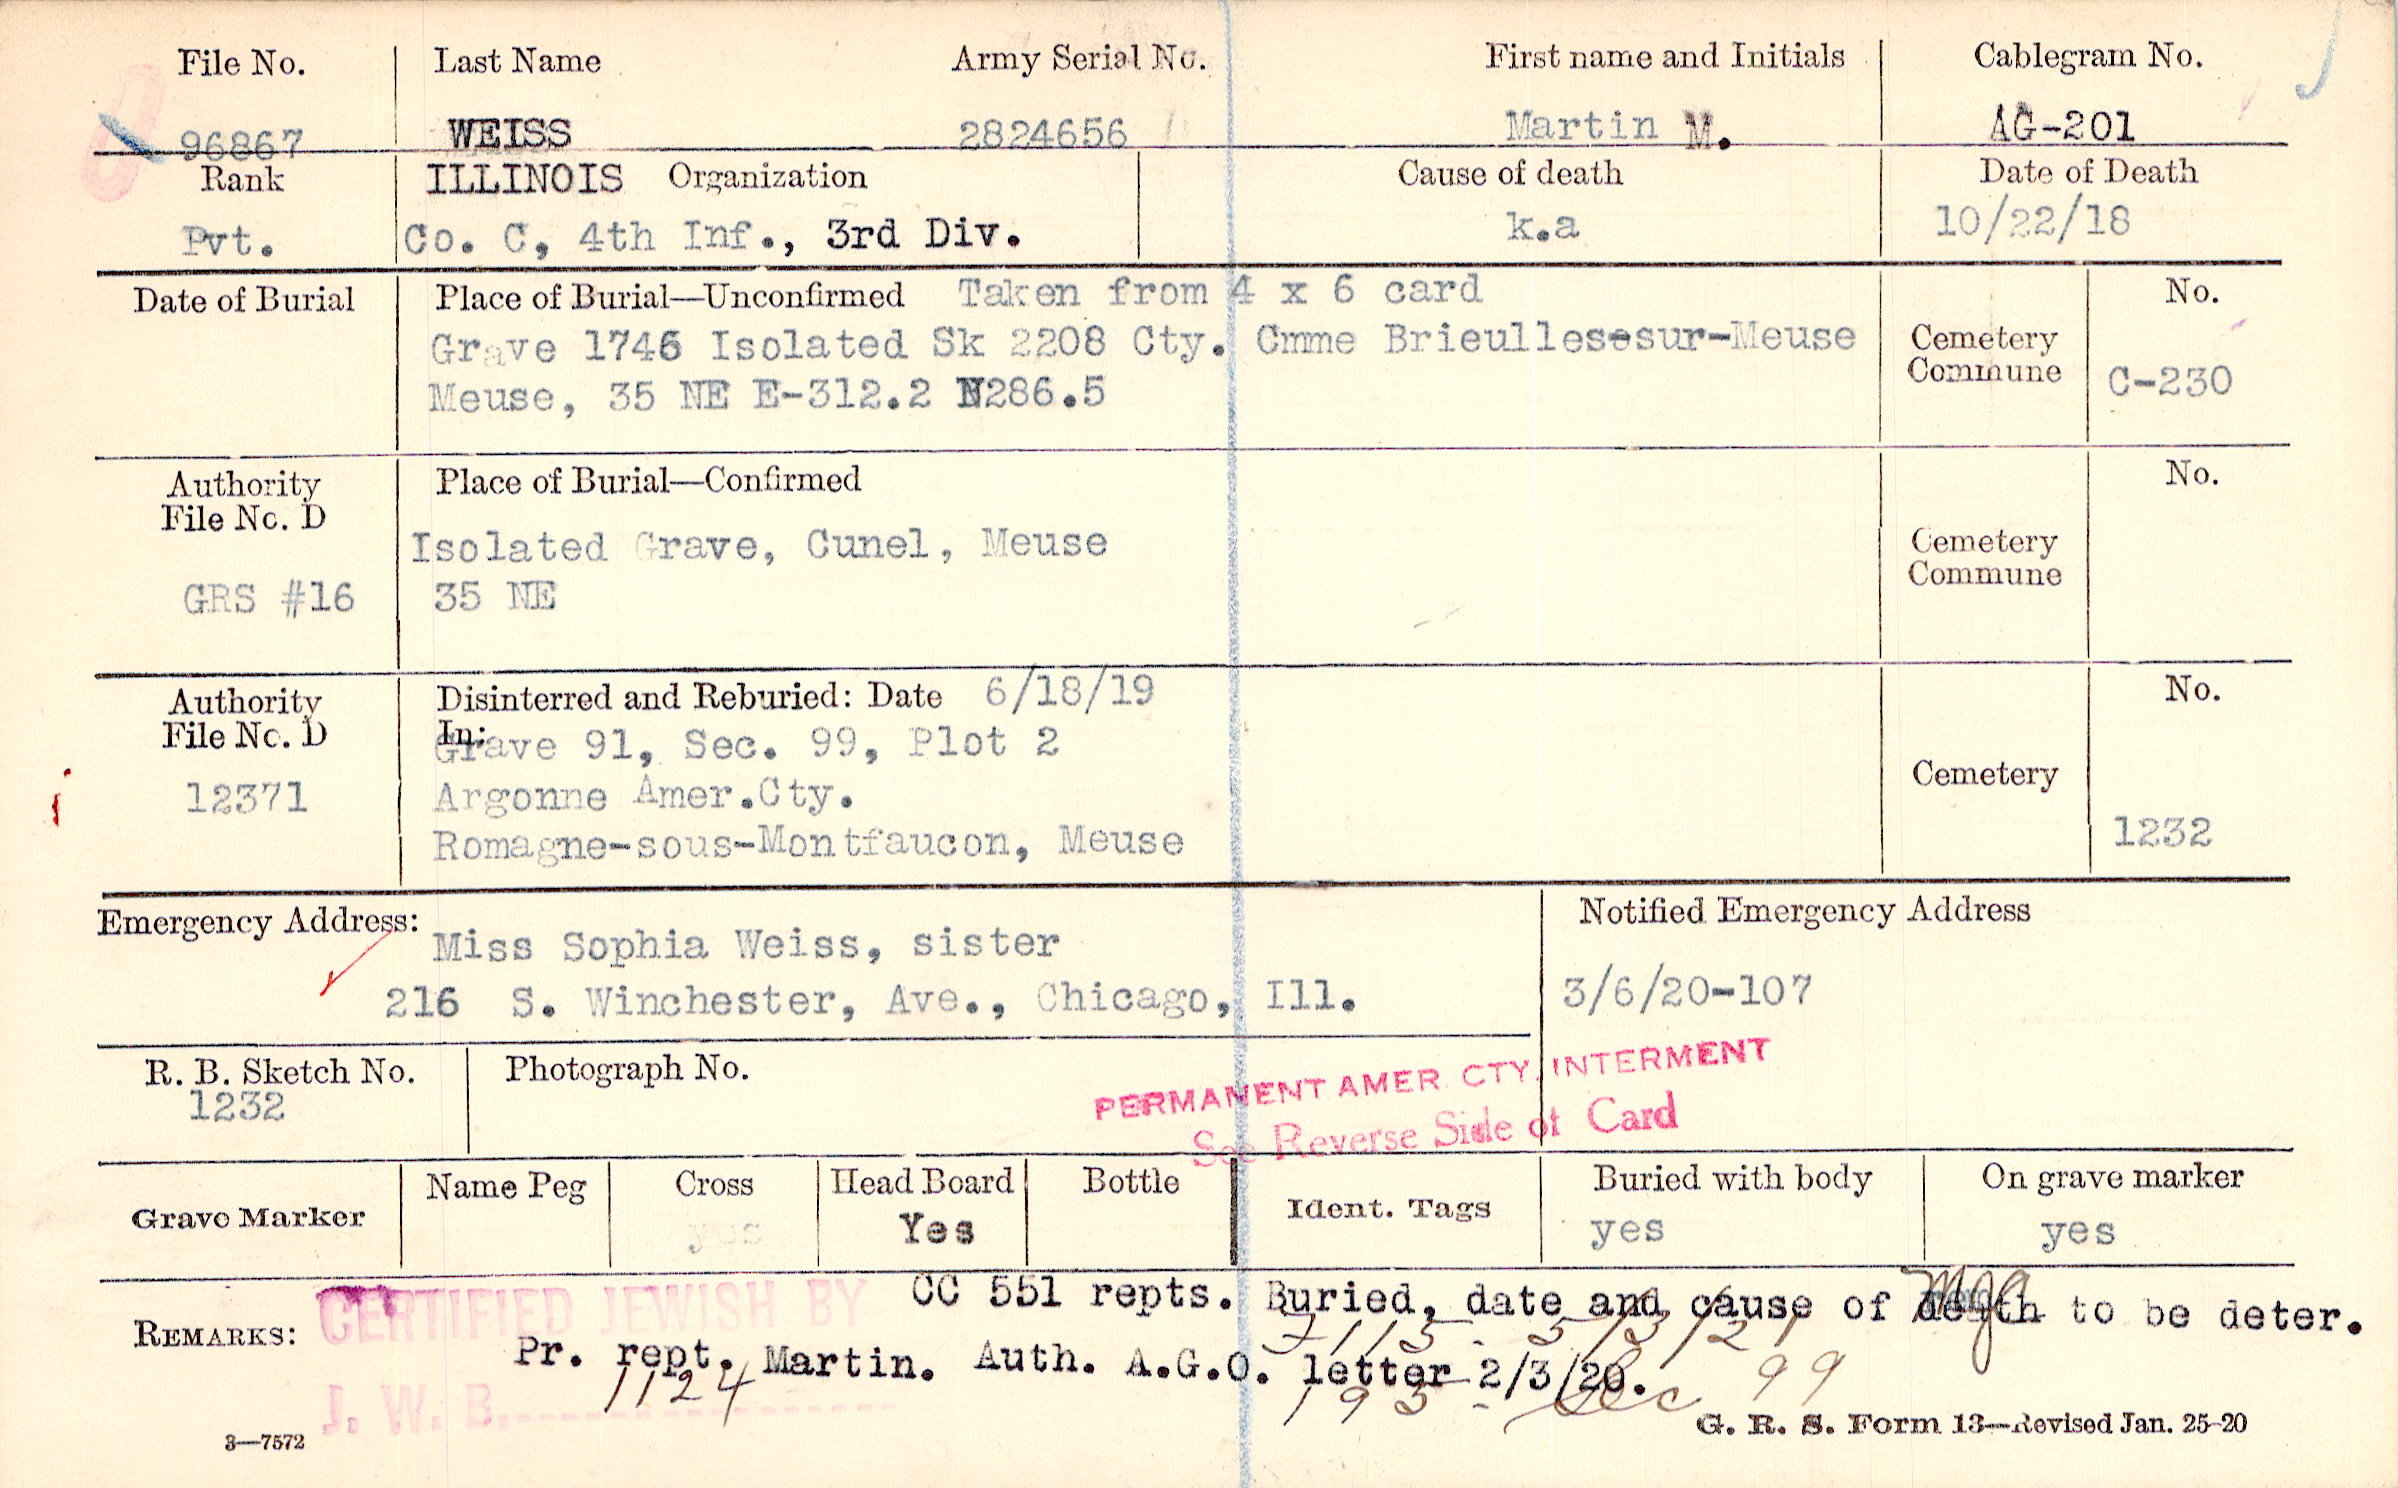 File No. Last Name Army Serial No. First name and Initials Cablegram No.
96867 WEISS 2824656 Martin M. AG-201
Rank ILLINOIS Organization Cause of death Date of Death
Pvt. Co. C, 4th Inf., 3rd Div. k.a 10/22/18
Date of Burial Place of Burial—Unconfirmed Taken from 4 x 6 card No.
Grave 1746 Isolated Sk 2208 Cty. Cmme Brieullesesur-Meuse Cemetery
Meuse, 35 NE E-312.2 N286.5 Commune C-230
Authority Place of Burial—Confirmed No.
File No. D
Isolated Grave, Cunel, Meuse Cemetery
GRS #16 35 NE Commune
Authority Disinterred and Reburied: Date 6/18/19 No.
File No. D In:
Grave 91, Sec. 99, Plot 2
12371 Argonne Amer.Cty. Cemetery
Romagne-sous-Montfaucon, Meuse 1232
Emergency Address: Notified Emergency Address
Miss Sophia Weiss, sister
216 S. Winchester, Ave., Chicago, Ill. 3/6/20-107
R. B. Sketch No. Photograph No.
1232
PERMANENT AMER. CTY. INTERMENT
See Reverse Side of Card
Grave Marker Name Peg Cross Head Board Bottle Ident. Tags Buried with body On grave marker
yes Yes yes yes
CERTIFIED JEWISH BY
CC 551 repts. Buried, date and cause of death to be deter.
REMARKS:
Pr. rept. Martin. Auth. A.G.O. letter 2/3/20.
1124
99
J. W. B.
3—7572 G. R. S. Form 13—Revised Jan. 25-20